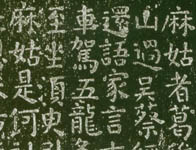 麻姑者葛
山過吳蔡經
還語家言
車駕五龍各
至坐須臾
麻姑是何